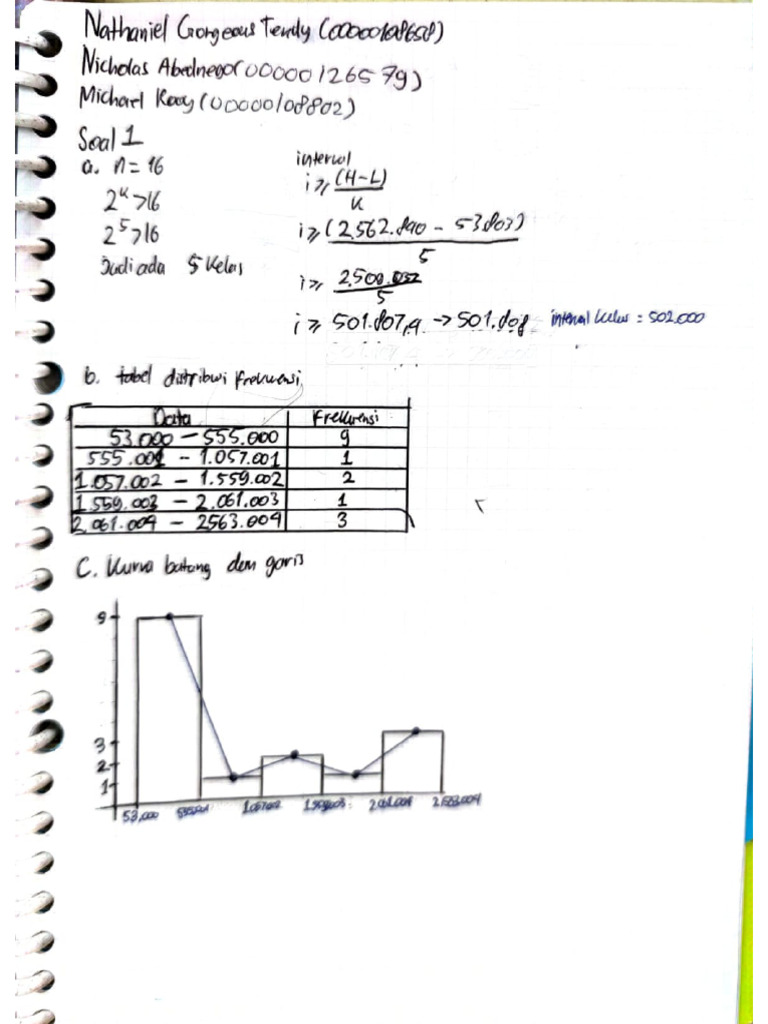 Nathaniel Gorgeous Tendy (00000108658)
Nicholas Abednego (00000126579)
Michael (00000108802)
Soal 1
a. n = 16
2^k > 16
2^5 > 16
Jadi ada 5 Kelas
interval
i ≥ (H - L)
k
i ≥ (2.562.890 - 53.803)
5
i ≥
5
i ≥ 501.807,4 → 501.808 interval kelas = 502.000
b. tabel distribusi frekuensi
Data Frekuensi
53.000 - 555.000 9
555.001 - 1.057.001 1
1.057.002 - 1.559.002 2
1.559.003 - 2.061.003 1
2.061.004 - 2563.004 3
C. Kurva batang dan garis
9
3
2
1
53,000 1.057.002 2.061.004 2.563.004